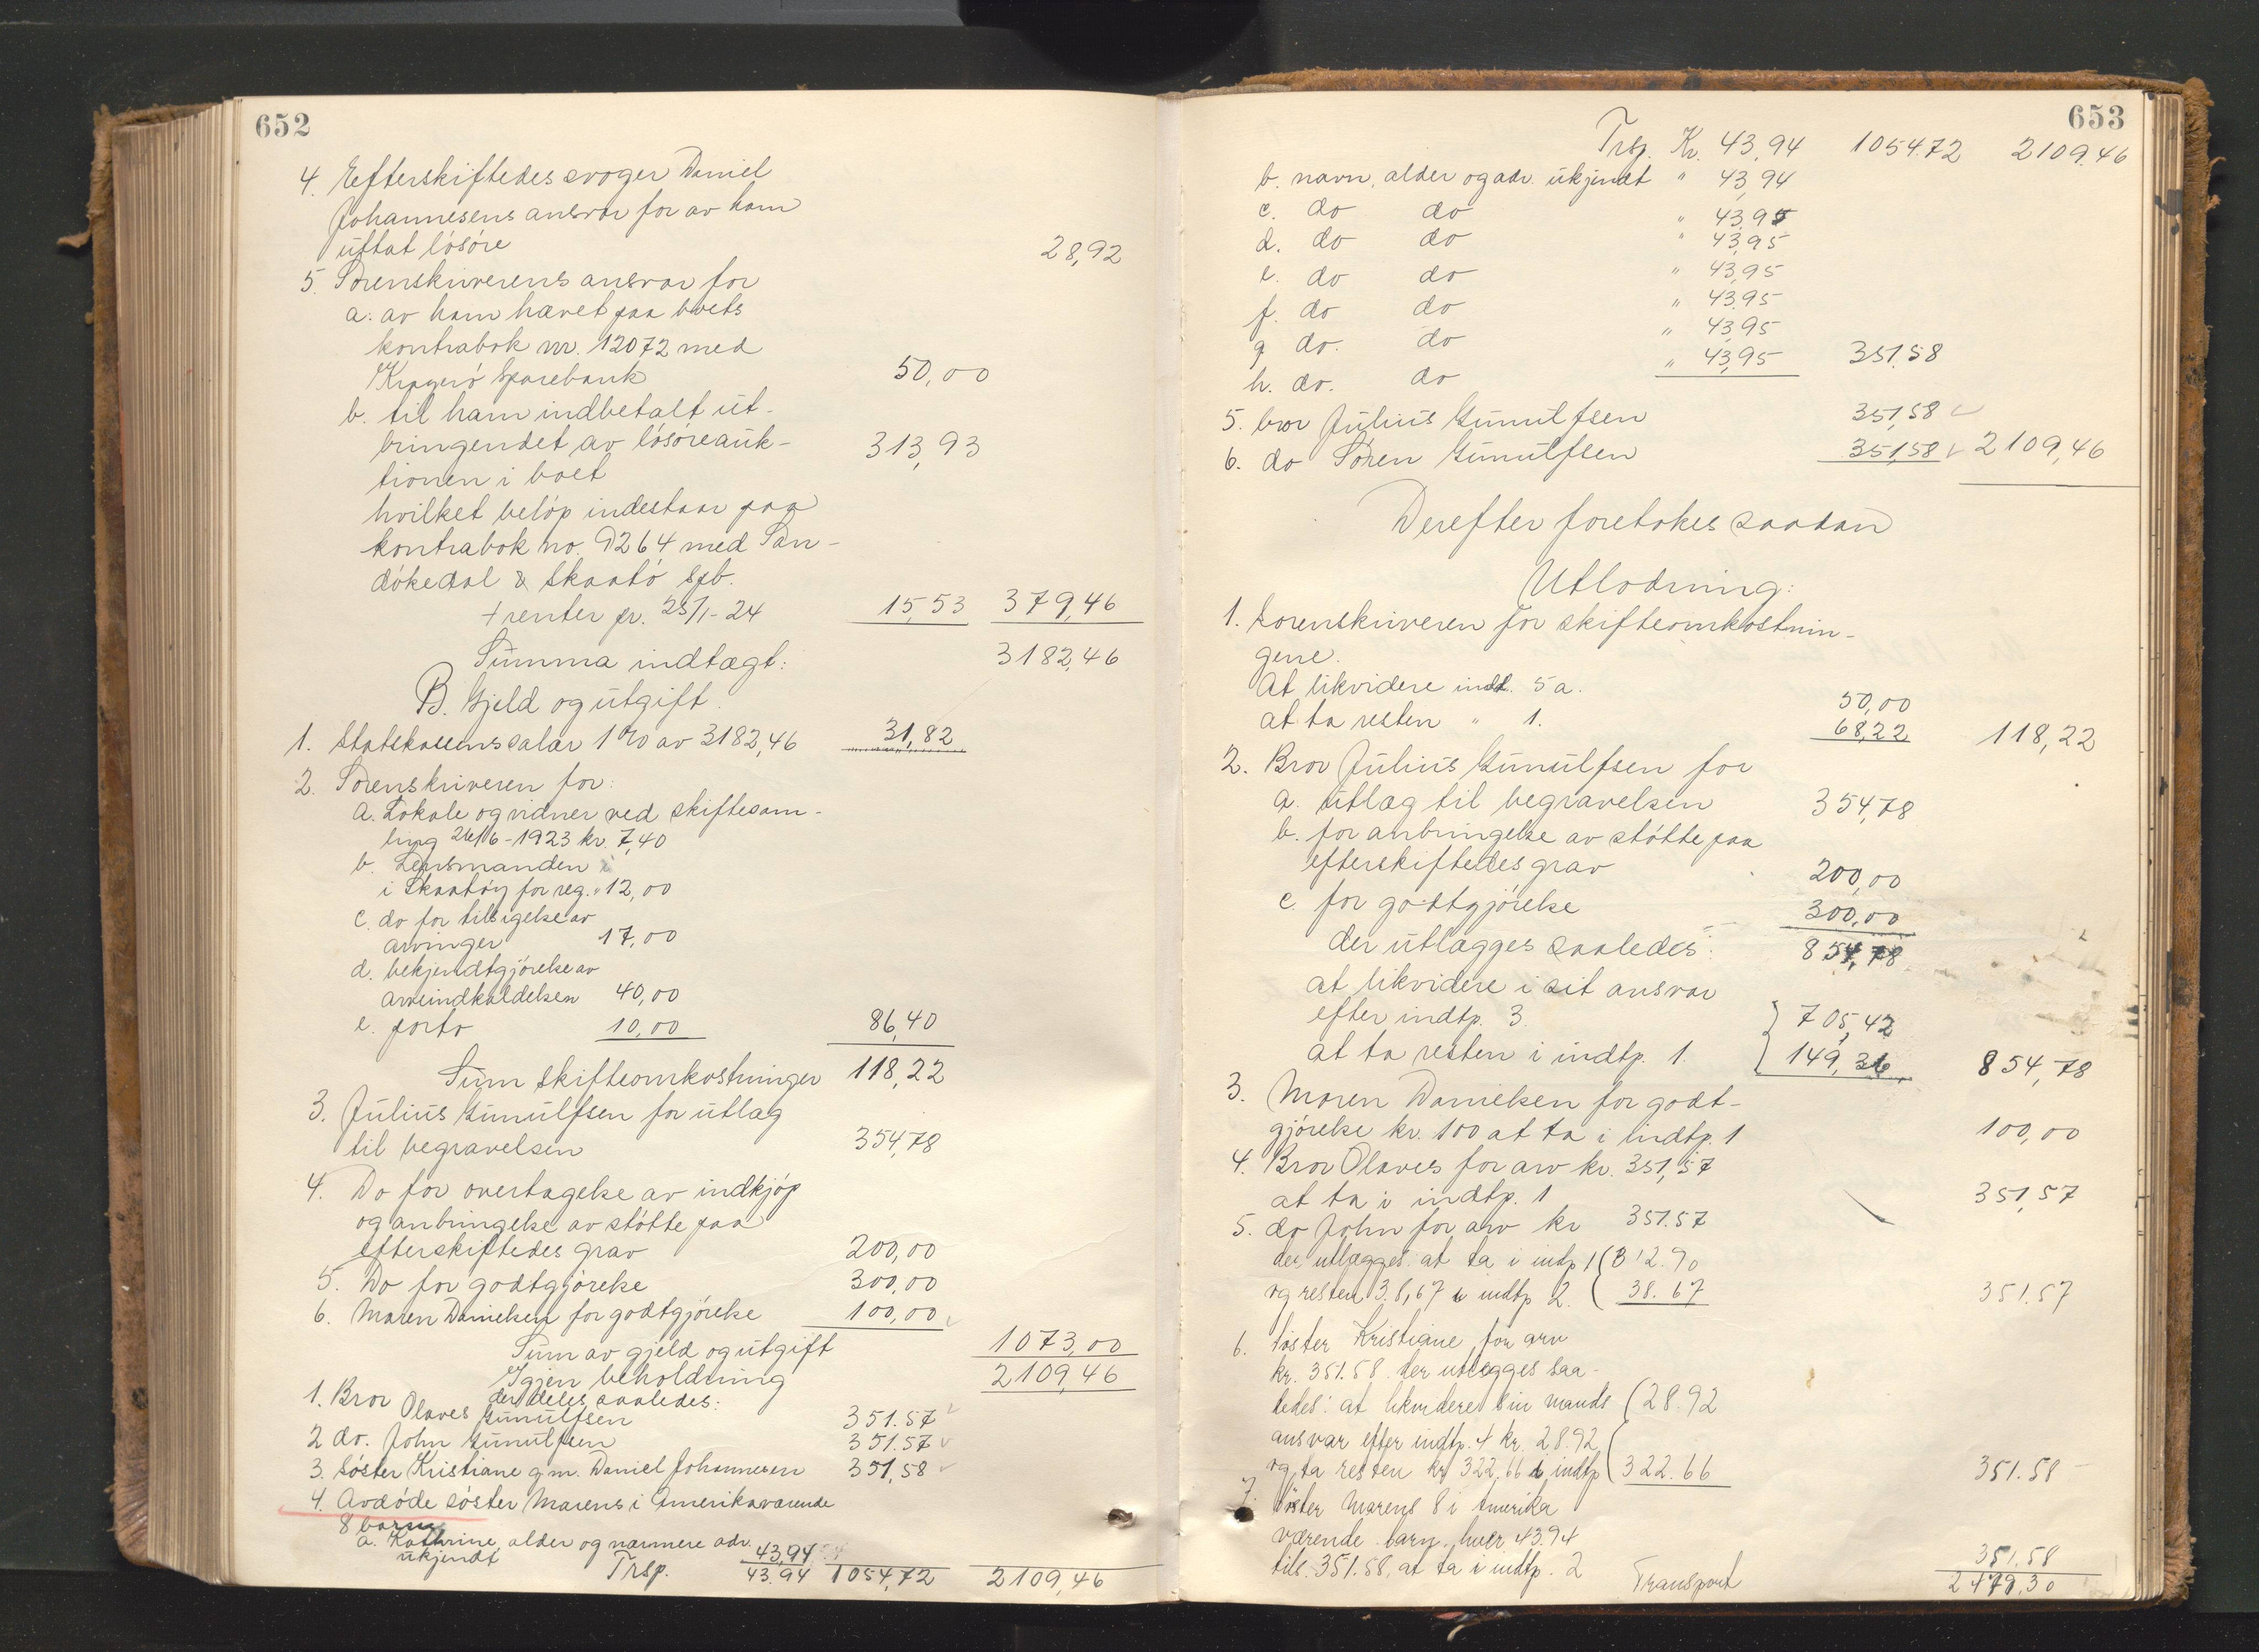 652
4. Efterskiftedes svoger Daniel
Johannesens ansvar for av ham
uttat lösöre 28,92
5. Sorenskriverens ansvar for
a. av ham hævet paa boets
kontrabok nr. 12072 med
Kragerö Sparebank 50,00
b. til ham indbetalt ut-
bringendet av lösöreauk- 313,93
tionen i boet
hvilket belöp indestaar paa
kontrabok no. D264 med San-
dökedal & Skaatö Spb.
+ renter pr. 25/1-24 15,53 379,46
Summa indtægt: 3182,46
B. Gjeld og utgift.
1. Statskassens salær 1% av 3182,46 31,82
2. Sorenskriveren for:
a. Lokale og vidner ved skiftesam-
ling 26/6-1923 kr. 7,40
b. Lensmanden i
i Skaatöy for reg. " 12,00
c. do for tilsigelse av
arvinger 17,00
d. bekjendtgjörelse av
arveindkaldelsen 40,00
e. porto 10,00 86,40
Sum skifteomkostninger 118,22
3. Julius Gunulfsen for utlæg
til begravelsen 354,78
4. Do for overtagelse av indkjöp
og anbringelse av stötte paa
efterskiftedes grav 200,00
5. Do for godtgjörelse 300,00
6. Maren Danielsen for godtgjörelse 100,00
Sum av gjeld og utgift 1073,00
Igjen beholdning 2109,46
der deles saaledes:
1. Bror Olaves Gunulfsen 351.57
2 do. John Gunulfsen 351.57
3. Söster Kristiane g.m. Daniel Johannesen 351,58
4. Avdöde söster Marens i Amerika værende
8 barn
a. Kathrine, alder og nærmere adr.
ukjendt 43,94
Trsp. 43.94 1054,72 2109,46
653
Trsp. Kr. 43,94 1054.72 2109.46
b. navn, alder og adr. ukjendt " 43,94
c. do do " 43,95
d. do do " 43,95
e. do do " 43,95
f. do do " 43,95
g do. do " 43,95
h. do. do " 43,95 351.58
5. bror Julius Gunulfsen 351,58
6. do Sören Gunulfsen 351,58 2109,46
Derefter foretokes saadan
Utlodning:
1. Sorenskriveren for skifteomkostnin-
gene.
At likvidere indt. 5a. 50,00
at ta resten " 1. 68,22 118,22
2. Bror Julius Gunulfsen for
a. utlæg til begravelsen 354,78
b. for anbringelse av stötte paa
efterskiftedes grav 200,00
c. for godtgjörelse 300,00
der utlægges saaledes: 854,78
at likvidere i sit ansvar
efter indtp. 3. 705,42
at ta resten i indtp. 1. 149,36 854,78
3. Maren Danielsen for godt-
gjörelse kr. 100 at ta i indtp. 1 100,00
4. Bror Olaves for arv kr. 351,57
at ta i indtp. 1 351,57
5. do John for arv kr 351.57
der utlægges: at ta i indtp 1 312.90
og resten 38,67 i indtp 2. 38.67 351.57
6. söster Kristiane for arv
kr. 351.58 der utlægges saa-
ledes: at likvidere sin mands 28.92
ansvar efter indtp. 4 kr. 28.92
og ta resten kr 322.66 i indtp 322.66 351.58
7. söster Marens 8 i Amerika
værende barn, hver 43.94
tils. 351.58, at ta i indtp. 2 351.58
Transport 2479.30